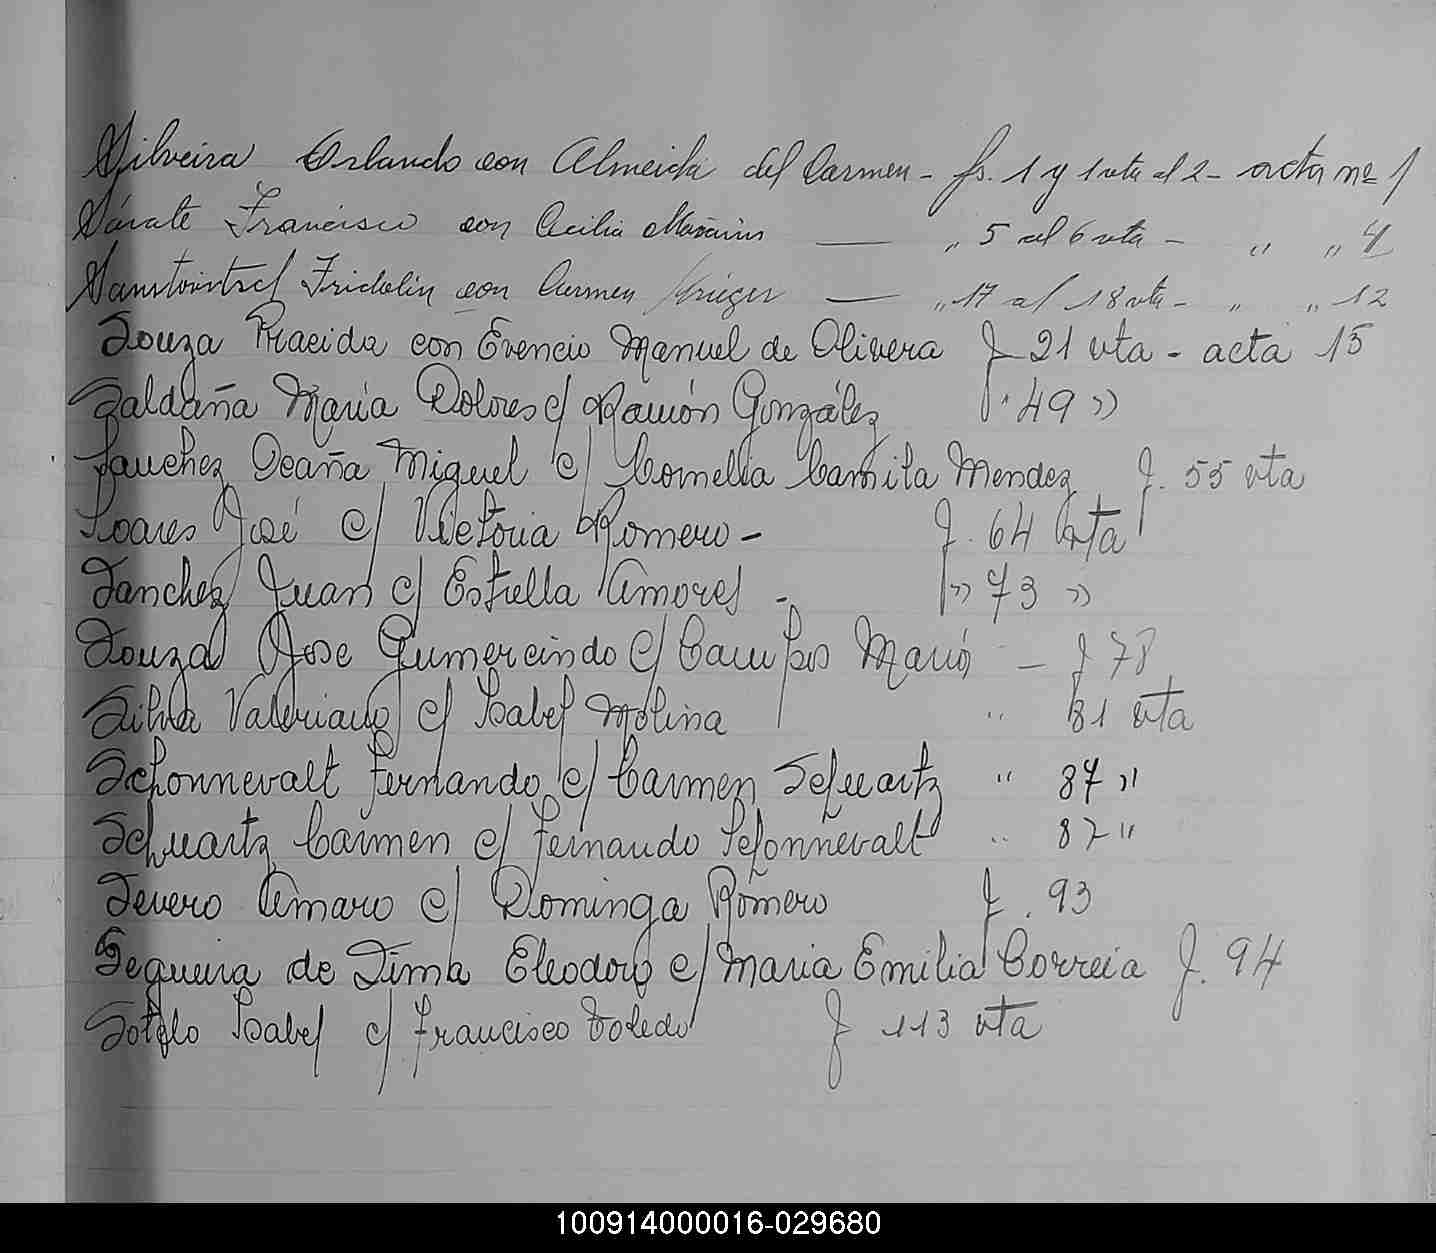 Silveira Orlando con Almeida del Carmen - fs. 1 y 1 vta al 2 - acta nº 1
Sárate Francisco con Cecilia - " 5 al 6 vta - " " 4
Fridolin con Carmen Krieger - " 17 al 18 vta - " " 12
Souza Placida con Evencio Manuel de Olivera f 21 vta - acta 15
Saldaña María Dolores c/ Ramón González f. 49 »
Sanchez Ocaña Miguel c/ Cornelia Camila Mendez f. 55 vta
Soares José c/ Victoria Romero - f. 64 vta
Sanchez Juan c/ Estrella Amores - » 73 »
Souza Jose Gumercindo c/ Campos María - f 78
Silva Valeriano c/ Isabel Molina " 81 vta
Schonnevalt Fernando c/ Carmen Schuartz " 87 "
Schuartz Carmen c/ Fernando Schonnevalt " 87 "
Severo Amaro c/ Dominga Romero f. 93
Sequeira de Lima Eleodoro c/ Maria Emilia Correia f. 94
Sotelo Isabel c/ Francisco Toledo f 113 vta
100914000016-029680